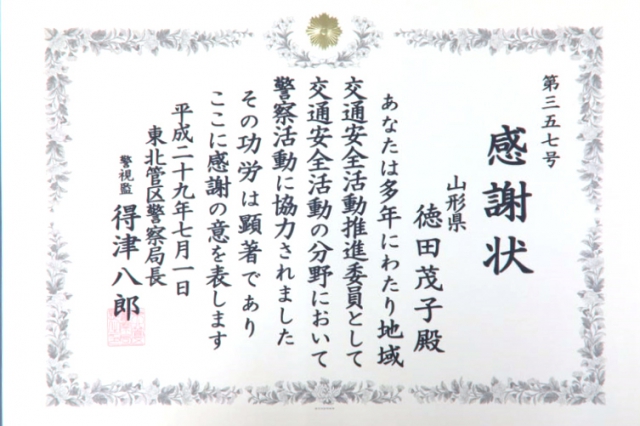 第三五七号
感謝状
山形県
徳田茂子殿
あなたは多年にわたり地域
交通安全活動推進委員として
交通安全活動の分野において
警察活動に協力されました
その功労は顕著であり
ここに感謝の意を表します
平成二十九年七月一日
東北管区警察局長
警視監 得津八郎